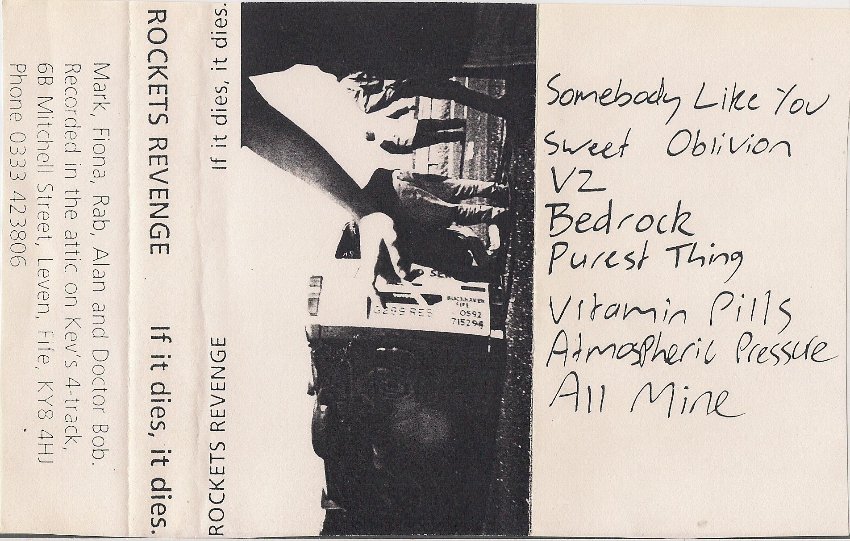 Mark, Fiona, Rab, Alan and Doctor Bob.
Recorded in the attic on Kev's 4-track,
6B Mitchell Street, Leven, Fife, KY8 4HJ
Phone 0333 423806
ROCKETS REVENGE If it dies, it dies.
ROCKETS REVENGE If it dies, it dies.
0592
715294
Somebody Like You
Sweet Oblivion
V2
Bedrock
Purest Thing
Vitamin Pills
Atmospheric Pressure
All Mine